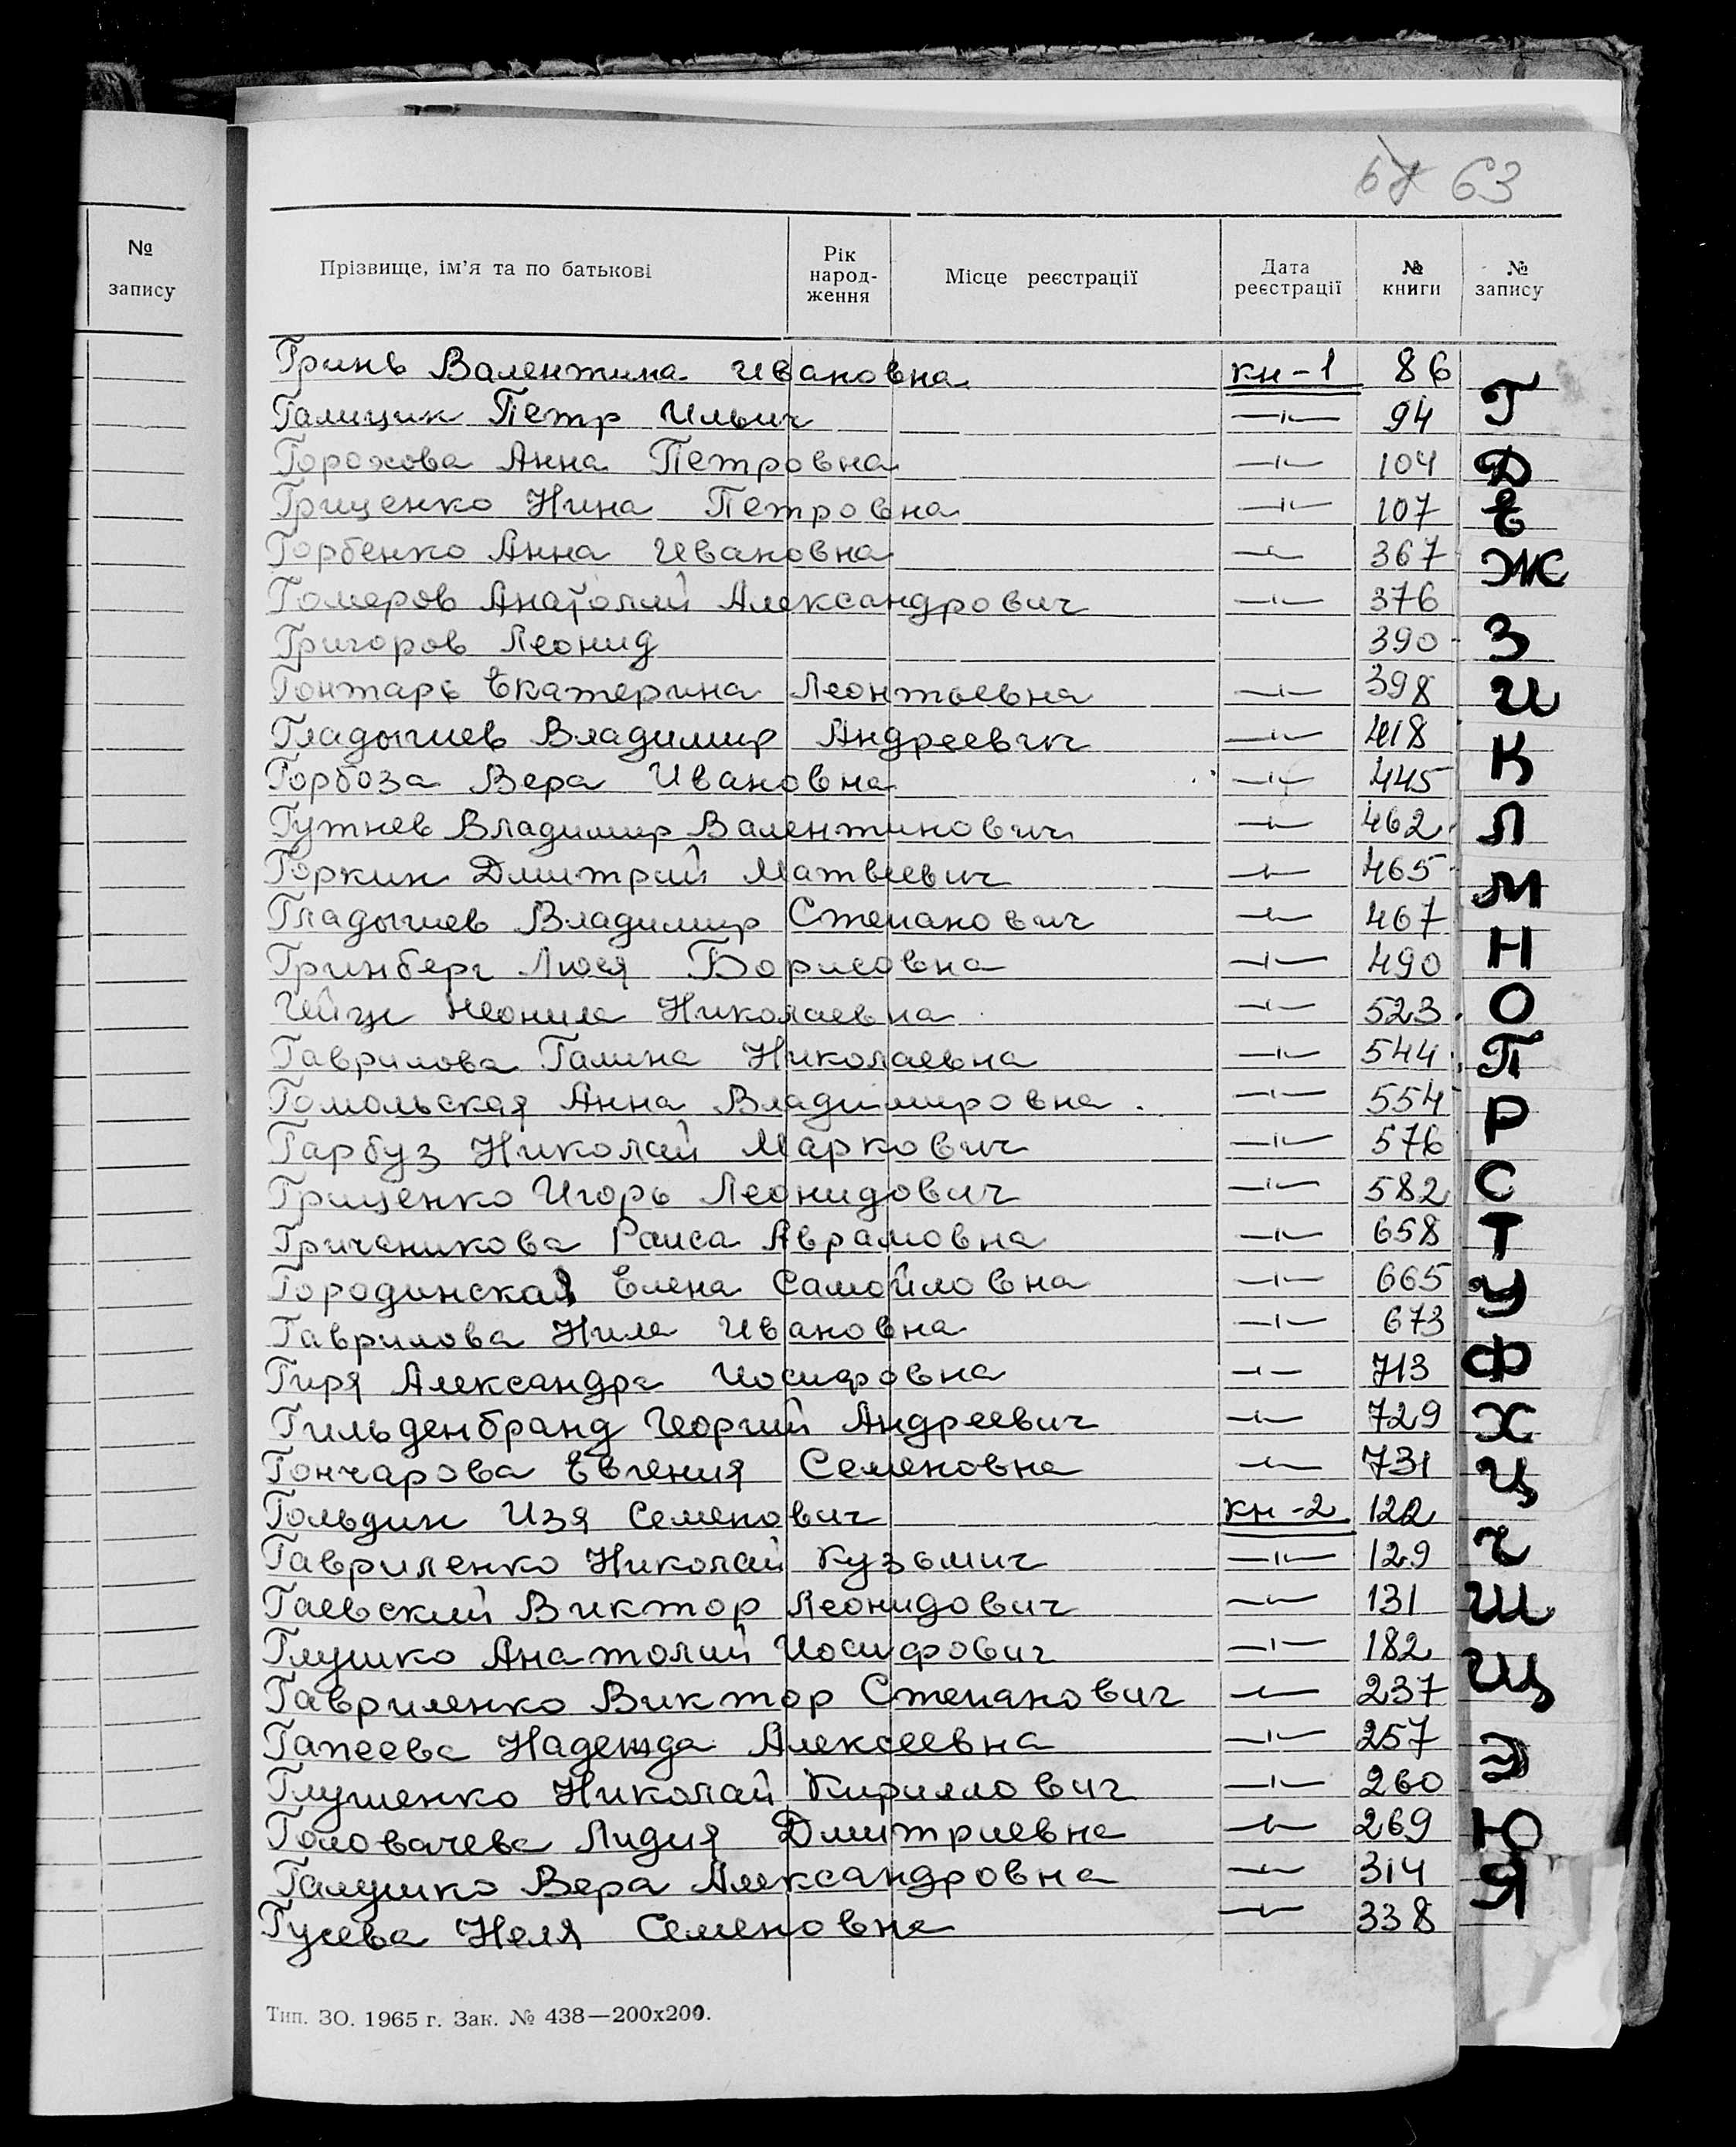 6̶7̶ 63
№ запису
Прізвище, ім'я та по батькові | Рік народ-ження | Місце реєстрації | Дата реєстрації | № книги | № запису
Гринь Валентина Ивановна кн-1 86
Галицик Петр Ильич —"— 94
Горохова Анна Петровна —"— 104
Гриценко Нина Петровна —"— 107
Горбенко Анна Ивановна —"— 367
Гомеров Анатолий Александрович —"— 376
Григоров Леонид 390
Гонтарь Екатерина Леонтьевна —"— 398
Гладышев Владимир Андреевич —"— 418
Горбоза Вера Ивановна —"— 445
Гутнев Владимир Валентинович —"— 462
Горкин Дмитрий Матвеевич —"— 465
Гладышев Владимир Степанович —"— 467
Гринберг Люся Борисовна —"— 490
Неонила Николаевна —"— 523
Гаврилова Галина Николаевна —"— 544
Гомольская Анна Владимировна —"— 554
Гарбуз Николай Маркович —"— 576
Гриценко Игорь Леонидович —"— 582
Гричаникова Раиса Аврамовна —"— 658
Городинская Елена Самойловна —"— 665
Гаврилова Нила Ивановна —"— 673
Гиря Александра Иосифовна —"— 713
Гильденбранд Георгий Андреевич —"— 729
Гончарова Евгения Семеновна —"— 731
Гольдин Изя Семенович кн-2 122
Гавриленко Николай Кузьмич —"— 129
Гаевский Виктор Леонидович —"— 131
Глушко Анатолий Иосифович —"— 182
Гавриленко Виктор Степанович —"— 237
Гапеева Надежда Алексеевна —"— 257
Глушенко Николай Кириллович —"— 260
Головачева Лидия Дмитриевна —"— 269
Галушко Вера Александровна —"— 314
Гусева Неля Семеновна —"— 338
Тип. ЗО. 1965 г. Зак. № 438—200х200.
Г
Д
Е
Ж
З
И
К
Л
М
Н
О
П
Р
С
Т
У
Ф
Х
Ц
Ч
Ш
Щ
Э
Ю
Я